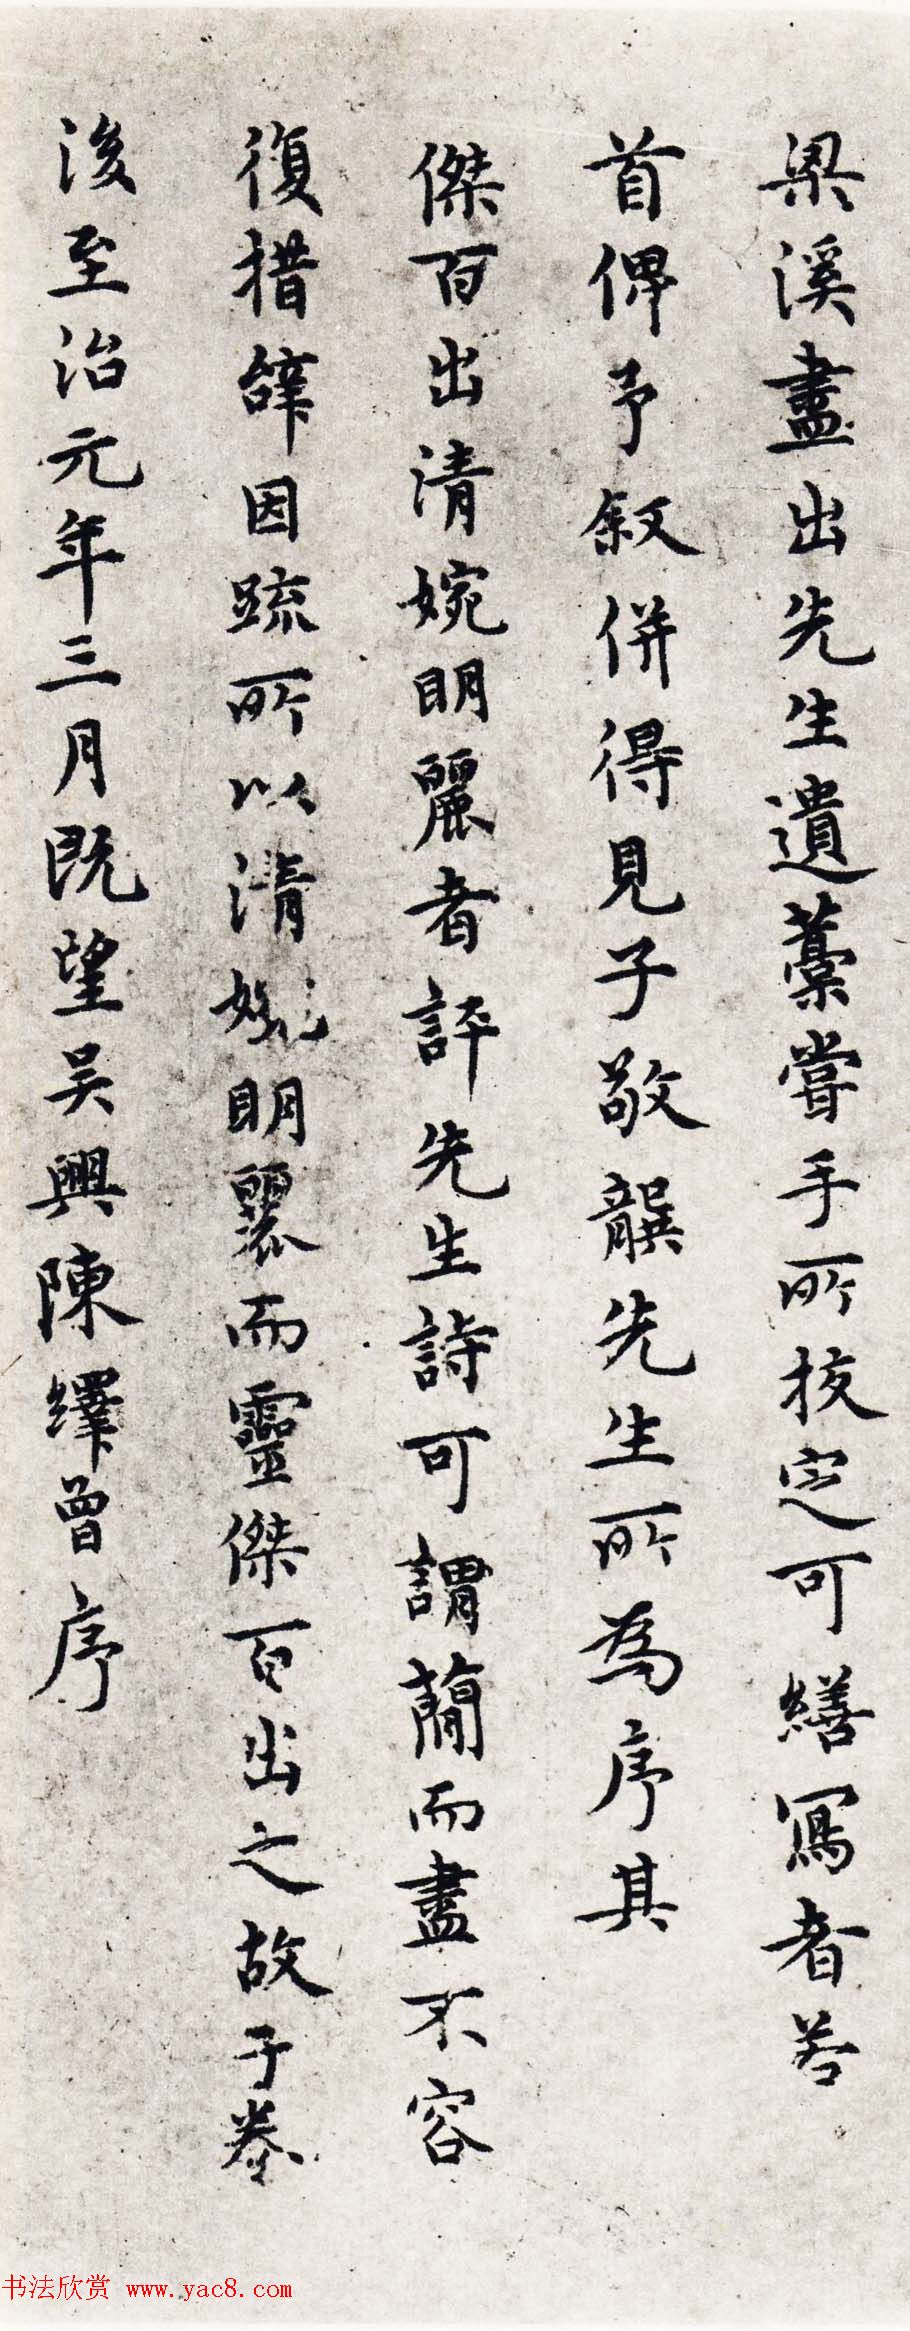 梁溪盡出先生遺藁嘗手所挍定可繕寫者若
首俾予叙併得見子敬龔先生所為序其
傑百出清婉明麗者評先生詩可謂簡而盡不容
復措辝因疏所以清婉明麗而靈傑百出之故于卷
後至治元年三月既望吴興陳繹曾序
书法欣赏 www.yac8.com